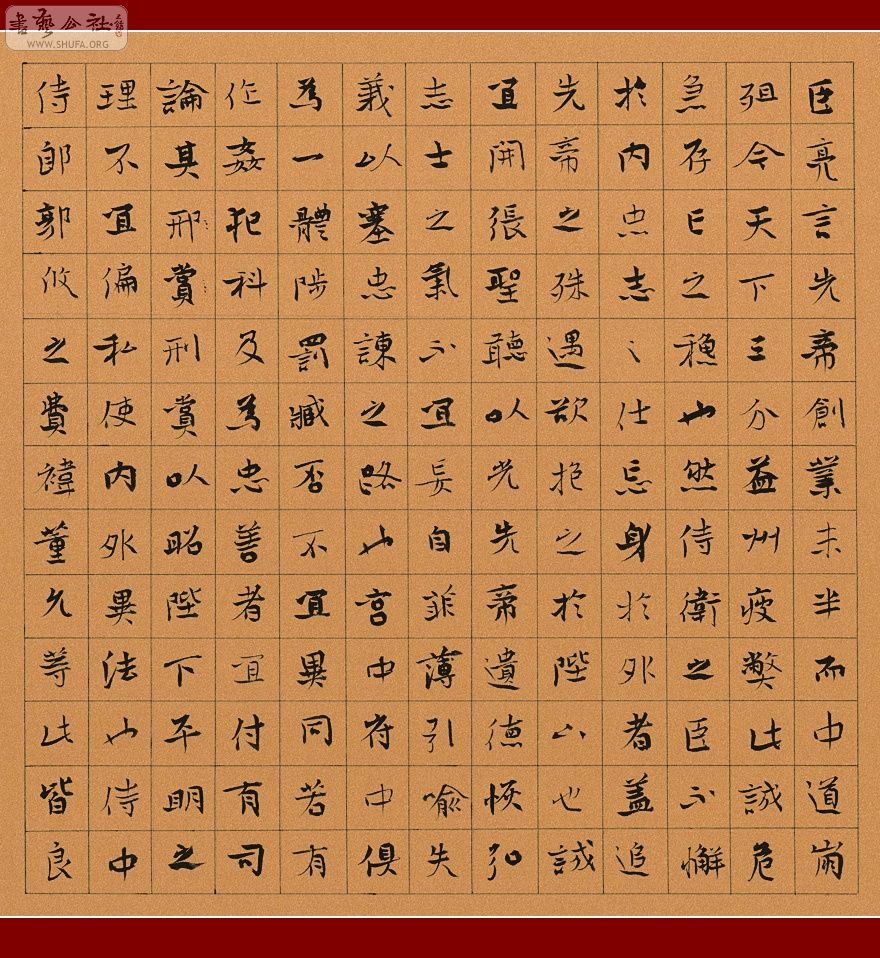 書藝公社
WWW.SHUFA.ORG
臣亮言先帝創業未半而中道崩
殂今天下三分益州疲弊此誠危
急存亡之穐也然侍衛之臣不懈
於內忠志之仕忘身於外者蓋追
先帝之殊遇欲抱之於陛下也誠
宜開張聖聽以光先帝遺德恢弘
志士之氣不宜妄自菲薄引喻失
義以塞忠諫之路也宮中府中俱
為一體陟罰臧否不宜異同若有
作姦犯科及為忠善者宜付有司
論其邢賞刑賞以昭陛下平明之
理不宜偏私使內外異法也侍中
侍郎郭攸之費禕董允等此皆良